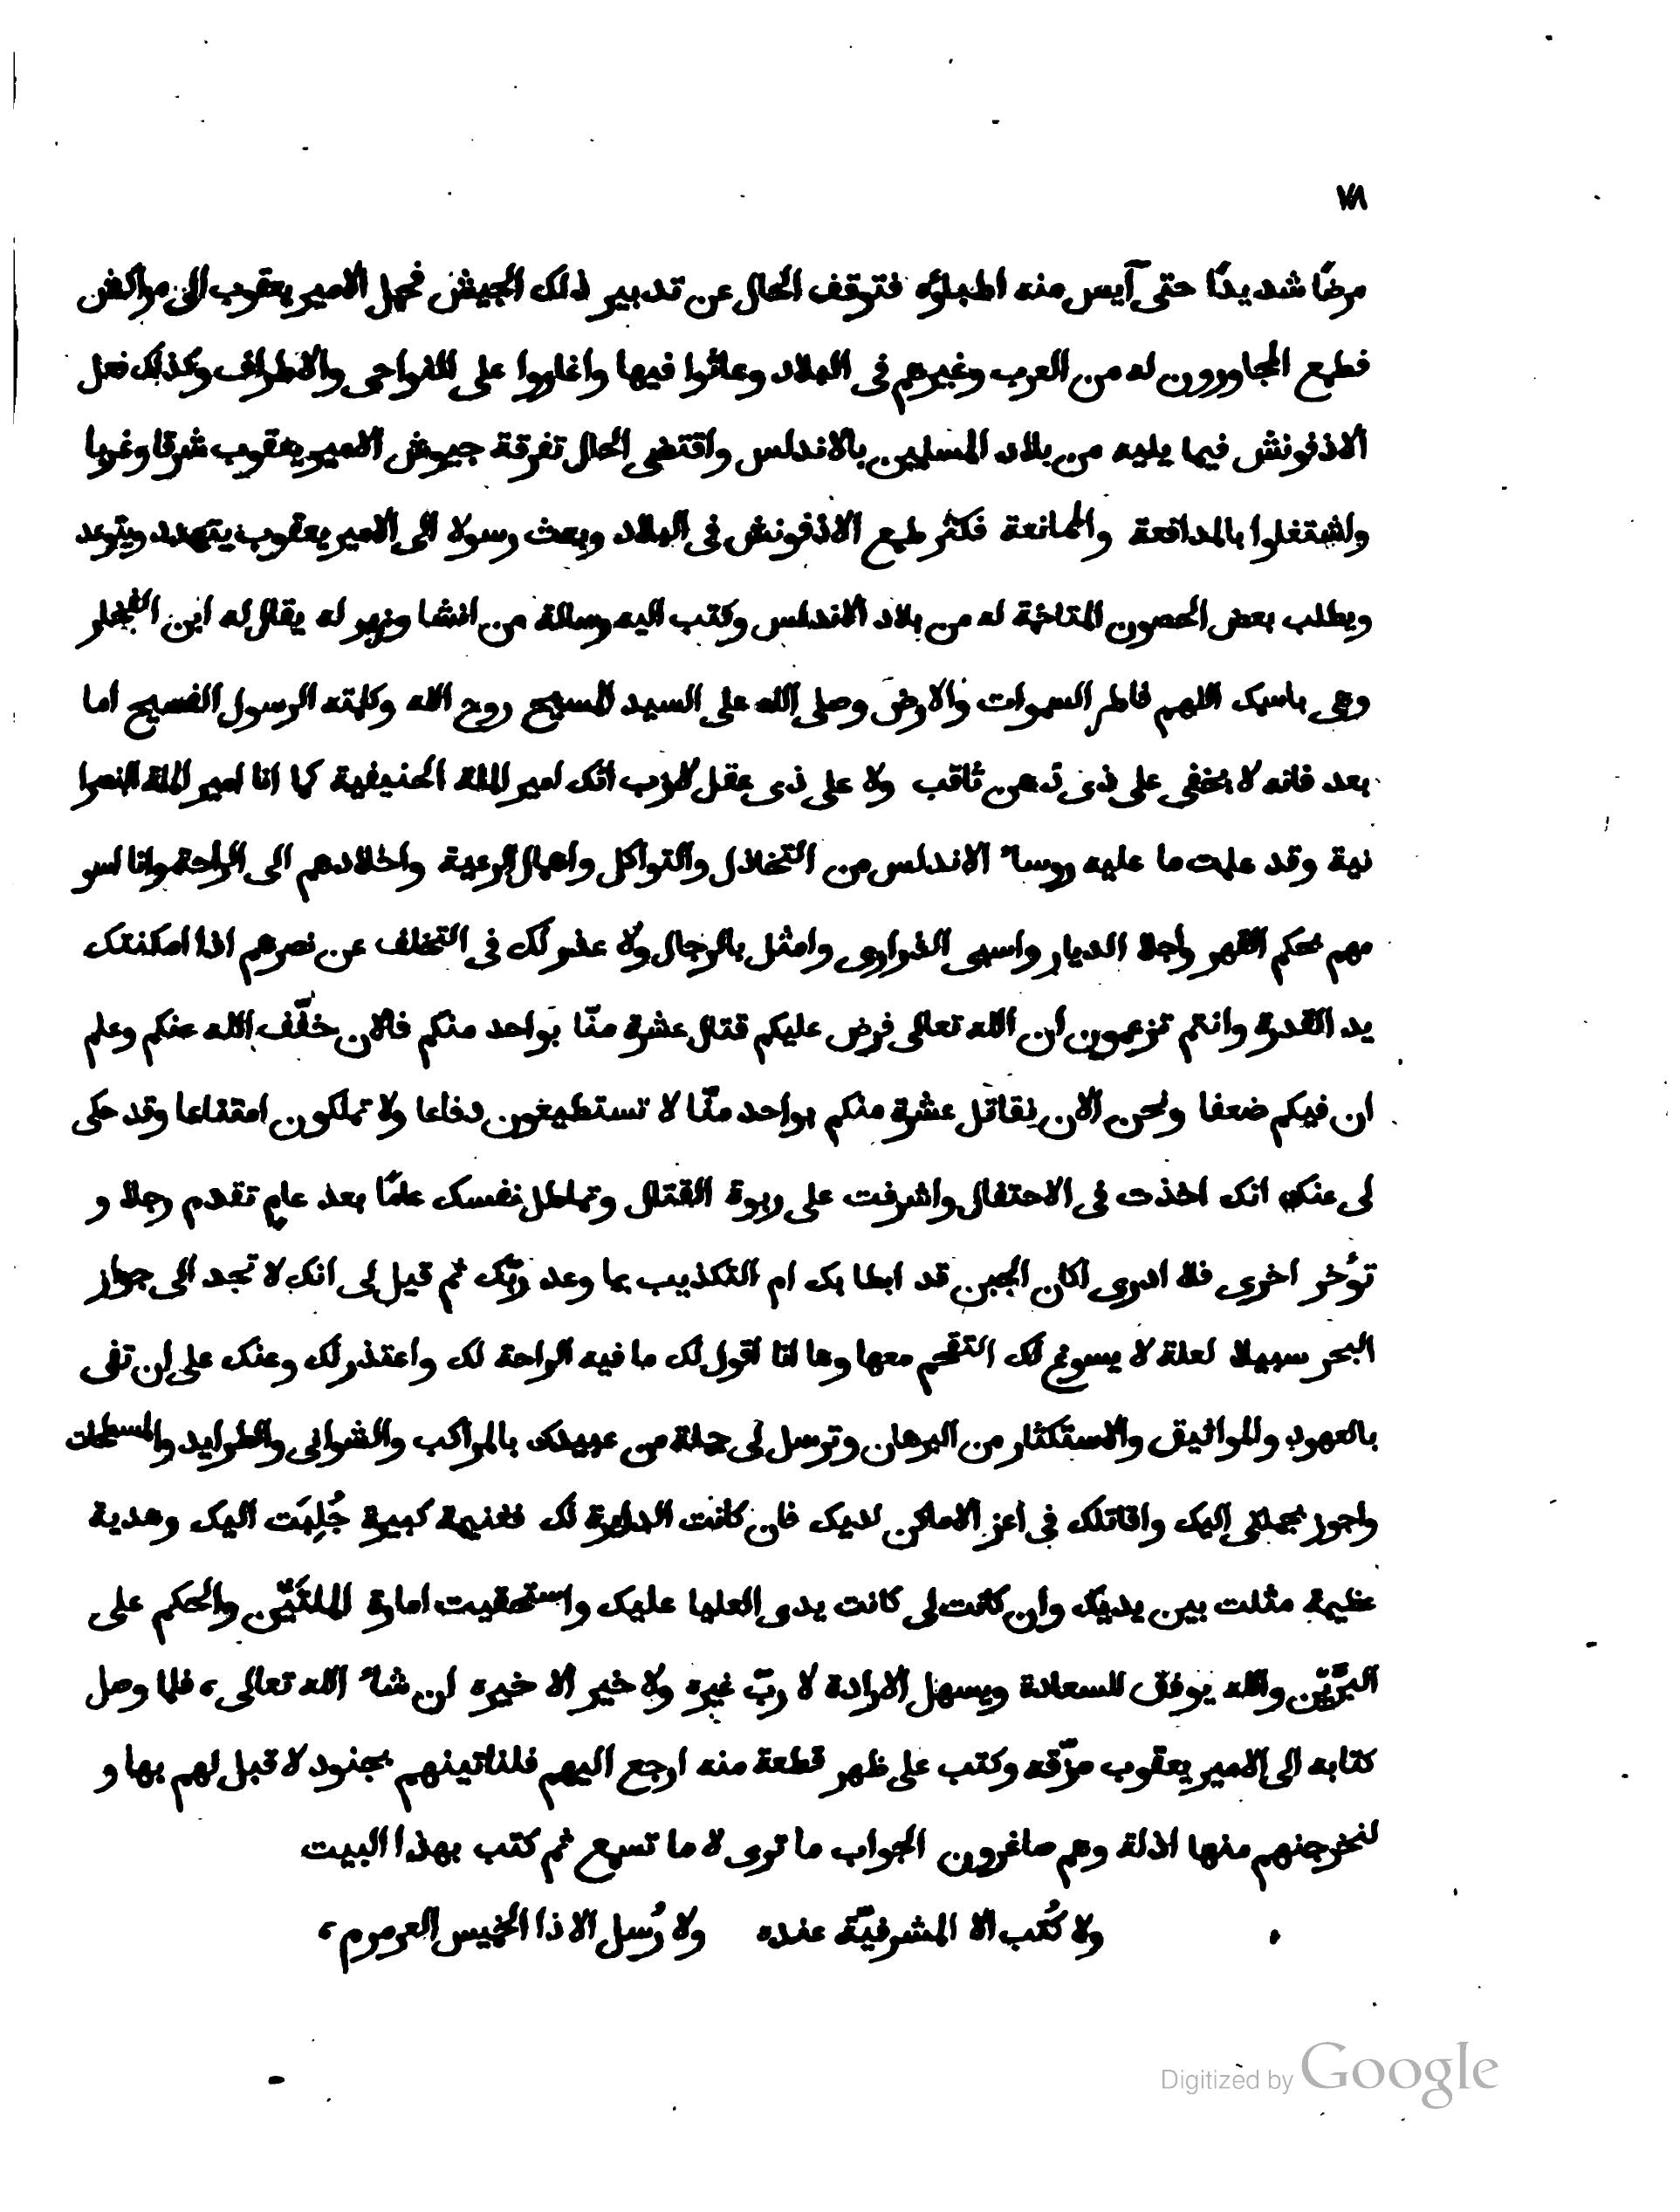 ٧٨
مرضًا شديدًا حتى آيس منه اطباوّه فتوقف الحال عن تدبير ذلك الجيش فحمل الامير يعقوب الى مراكش
فطمع المجاورون له من العرب وغيرهم فى البلاد وعاثوا فيها واغاروا على النواحى والاطراف وكذلك فعل
الاذفونش فيما يليه من بلاد المسلمين بالاندلس واقتضى الحال تفرقة جيوش الامير يعقوب شرقا وغربا
واشتغلوا بالمدافعة والممانعة فكثر طمع الاذفونش فى البلاد وبعث رسولا الى الامير يعقوب يتهدد ويتوعد
ويطلب بعض الحصون المتاخمة له من بلاد الاندلس وكتب اليه رسالة من انشا وزير له يقال له ابن الفخار
وهى باسمك اللهم فاطر السموات والارض وصلى الله على السيد المسيح روح الله وكلمته الرسول الفسيح اما
بعد فانه لا يخفى على ذى ذهن ثاقب ولا على ذى عقل لازب انك امير الملة الحنيفية كما انا امير الملة النصرا
نية وقد علمت ما عليه روسا الاندلس من التخاذل والتواكل واهمال الرعية واخلادهم الى الراحة وانا اسو
مهم بحكم القهر واجلا الديار واسبى الذرارى وامثل بالرجال ولا عذر لك فى التخلف عن نصرهم اذا امكنتك
يد القدرة وانتم تزعمون ان الله تعالى فرض عليكم قتال عشرة منّا بواحد منكم فالان خفّف الله عنكم وعلم
ان فيكم ضعفا ونحن الان نقاتل عشرة منكم بواحد منّا لا تستطيعون دفاعا ولا تملكون امتناعا وقد حكى
لى عنك انك اخذت فى الاحتفال واشرفت على ربوة القتال وتماطل نفسك عامًا بعد عام تقدم رجلا و
توُخر اخرى فلا ادرى اكان الجبن قد ابطا بك ام التكذيب بما وعد ربّك ثم قيل لى انك لا تجد الى جواز
البحر سبيلا لعلة لا يسوغ لك التقحم معها وها انا اقول لك ما فيه الراحة لك واعتذر لك وعنك على ان تفى
بالعهود والمواثيق والاستكثار من الرهان وترسل لى جملة من عبيدك بالمراكب والشوانى والطرايد والمسطحات
واجوز بجملتى اليك واقاتلك فى اعز الاماكن لديك فان كانت الدايرة لك فغنيمة كبيرة جُلِبَت اليك وهدية
عظيمة مثلت بين يديك وان كانت لى كانت يدى العليا عليك واستحقيت امارة الملتَيْن والحكم على
البرَّيْن والله يوفق للسعادة ويسهل الارادة لا ربّ غيره ولا خير الا خيره ان شا الله تعالى، فلما وصل
كتابه الى الامير يعقوب مزّقه وكتب على ظهر قطعة منه ارجع اليهم فلناتينهم بجنود لا قبل لهم بها و
لنخرجنهم منها اذلة وهم صاغرون الجواب ما ترى لا ما تسمع ثم كتب بهذا البيت
ولا كُتب الا المشرفيّة عنده ولا رُسل الا ذا الخميس العرمرم،
Digitized by Google